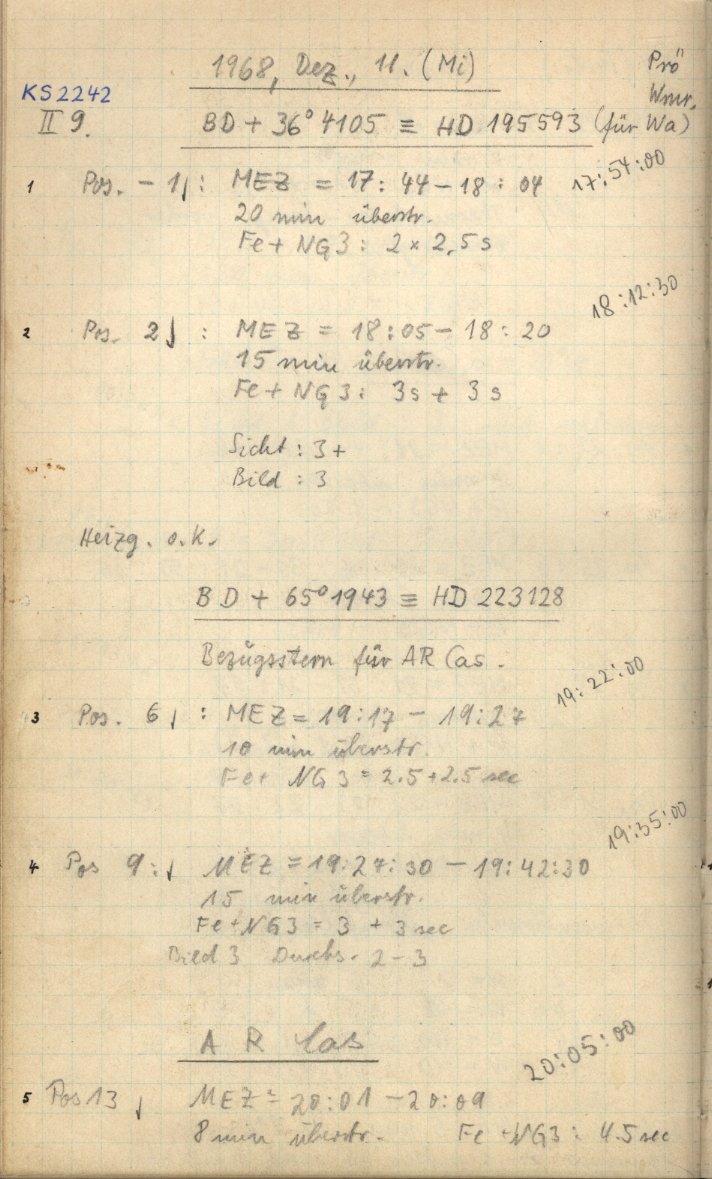 1968, Dez., 11. (Mi)
Prö
KS2242
Wmr.
II 9.
BD + 36° 4105 ≡ HD 195593 (für Wa)
1 Pos. - 1↓ : MEZ = 17:44 - 18:04 17:54:00
20 min überstr.
Fe + NG3 : 2 x 2,5 s
18:12:30
2 Pos. 2↓ : MEZ = 18:05 - 18:20
15 min überstr.
Fe + NG3 : 3s + 3s
Sicht : 3+
Bild : 3
Heizg. o.k.
BD + 65° 1943 ≡ HD 223128
Bezugsstern für AR Cas.
19:22:00
3 Pos. 6↓ : MEZ = 19:17 - 19:27
10 min überstr.
Fe + NG3 = 2.5 + 2.5 sec
19:35:00
4 Pos 9:↓ MEZ = 19:27:30 - 19:42:30
15 min überstr.
Fe + NG3 = 3 + 3 sec
Bild 3 Durchs. 2-3
AR Cas
20:05:00
5 Pos 13↓ MEZ = 20:01 - 20:09
8 min überstr. Fe + NG3 : 4.5 sec